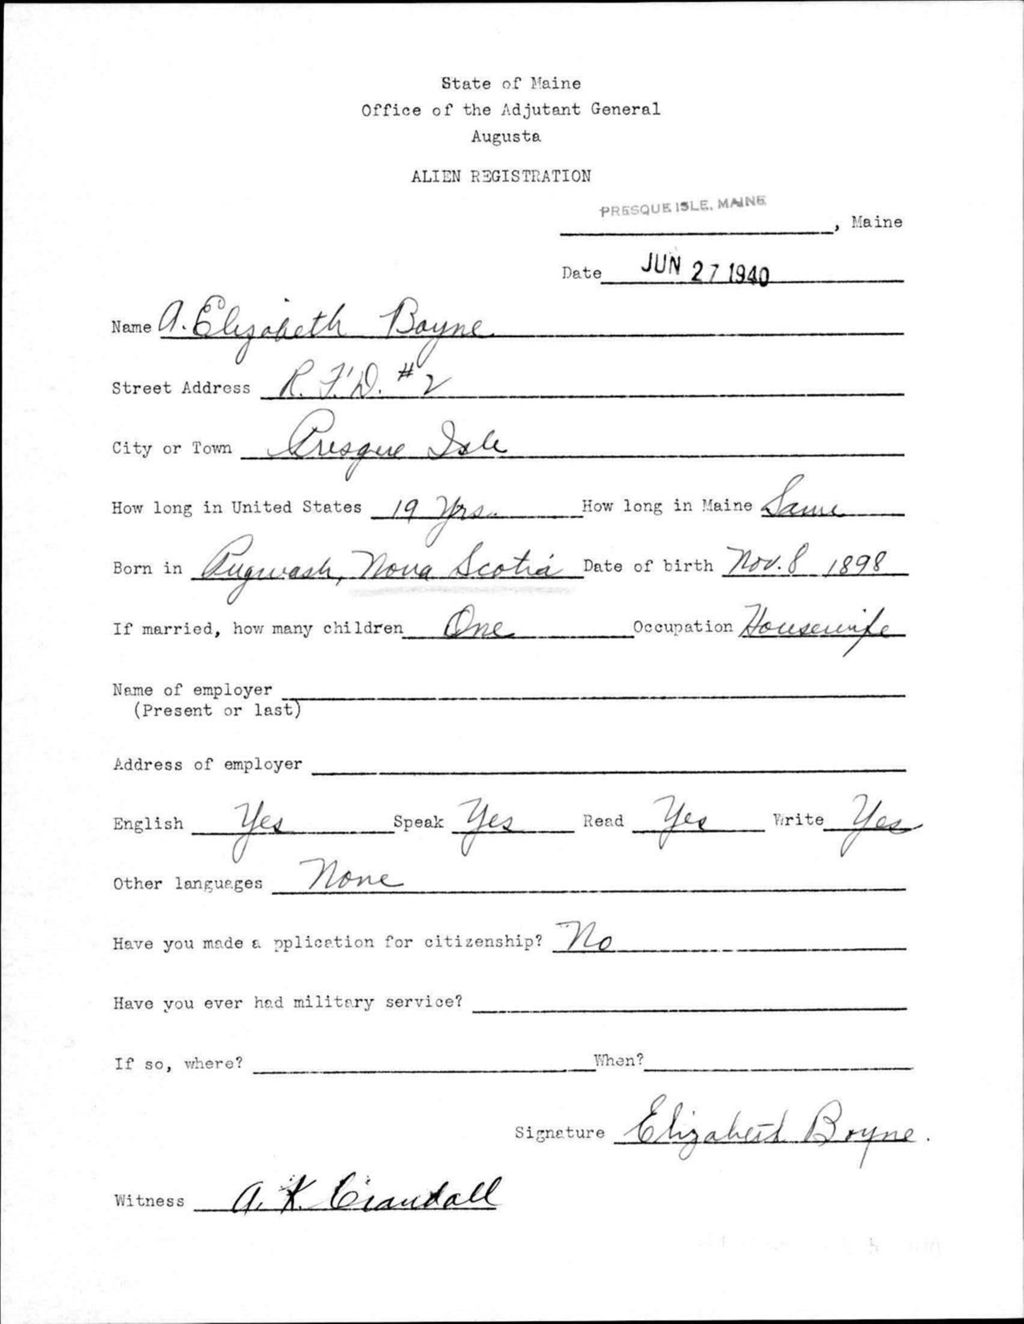 State of Maine
Office of the Adjutant General
Augusta
ALIEN REGISTRATION
PRESQUE ISLE, MAINE, Maine
Date JUN 27 1940
Name A. Elizabeth Boyne
Street Address R.F.D. #2
City or Town Presque Isle
How long in United States 19 Yrs. How long in Maine Same
Born in Pugwash, Nova Scotia Date of birth Nov. 8 1898
If married, how many children One Occupation Housewife
Name of employer
(Present or last)
Address of employer
English Yes Speak Yes Read Yes Write Yes
Other languages None
Have you made a pplication for citizenship? No
Have you ever had military service?
If so, where? When?
Signature Elizabeth Boyne.
Witness A. K. Crandall